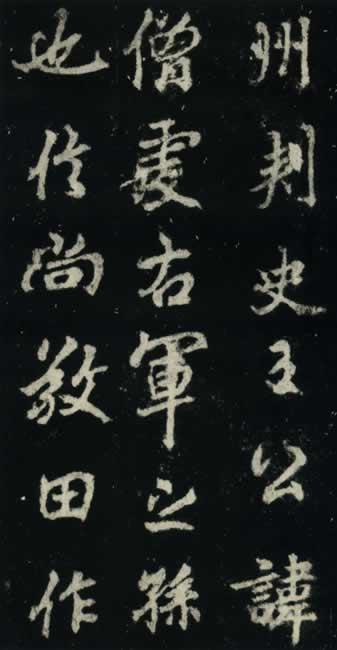 州刾史王公諱
僧虔右軍之孫
也信尚敬田作